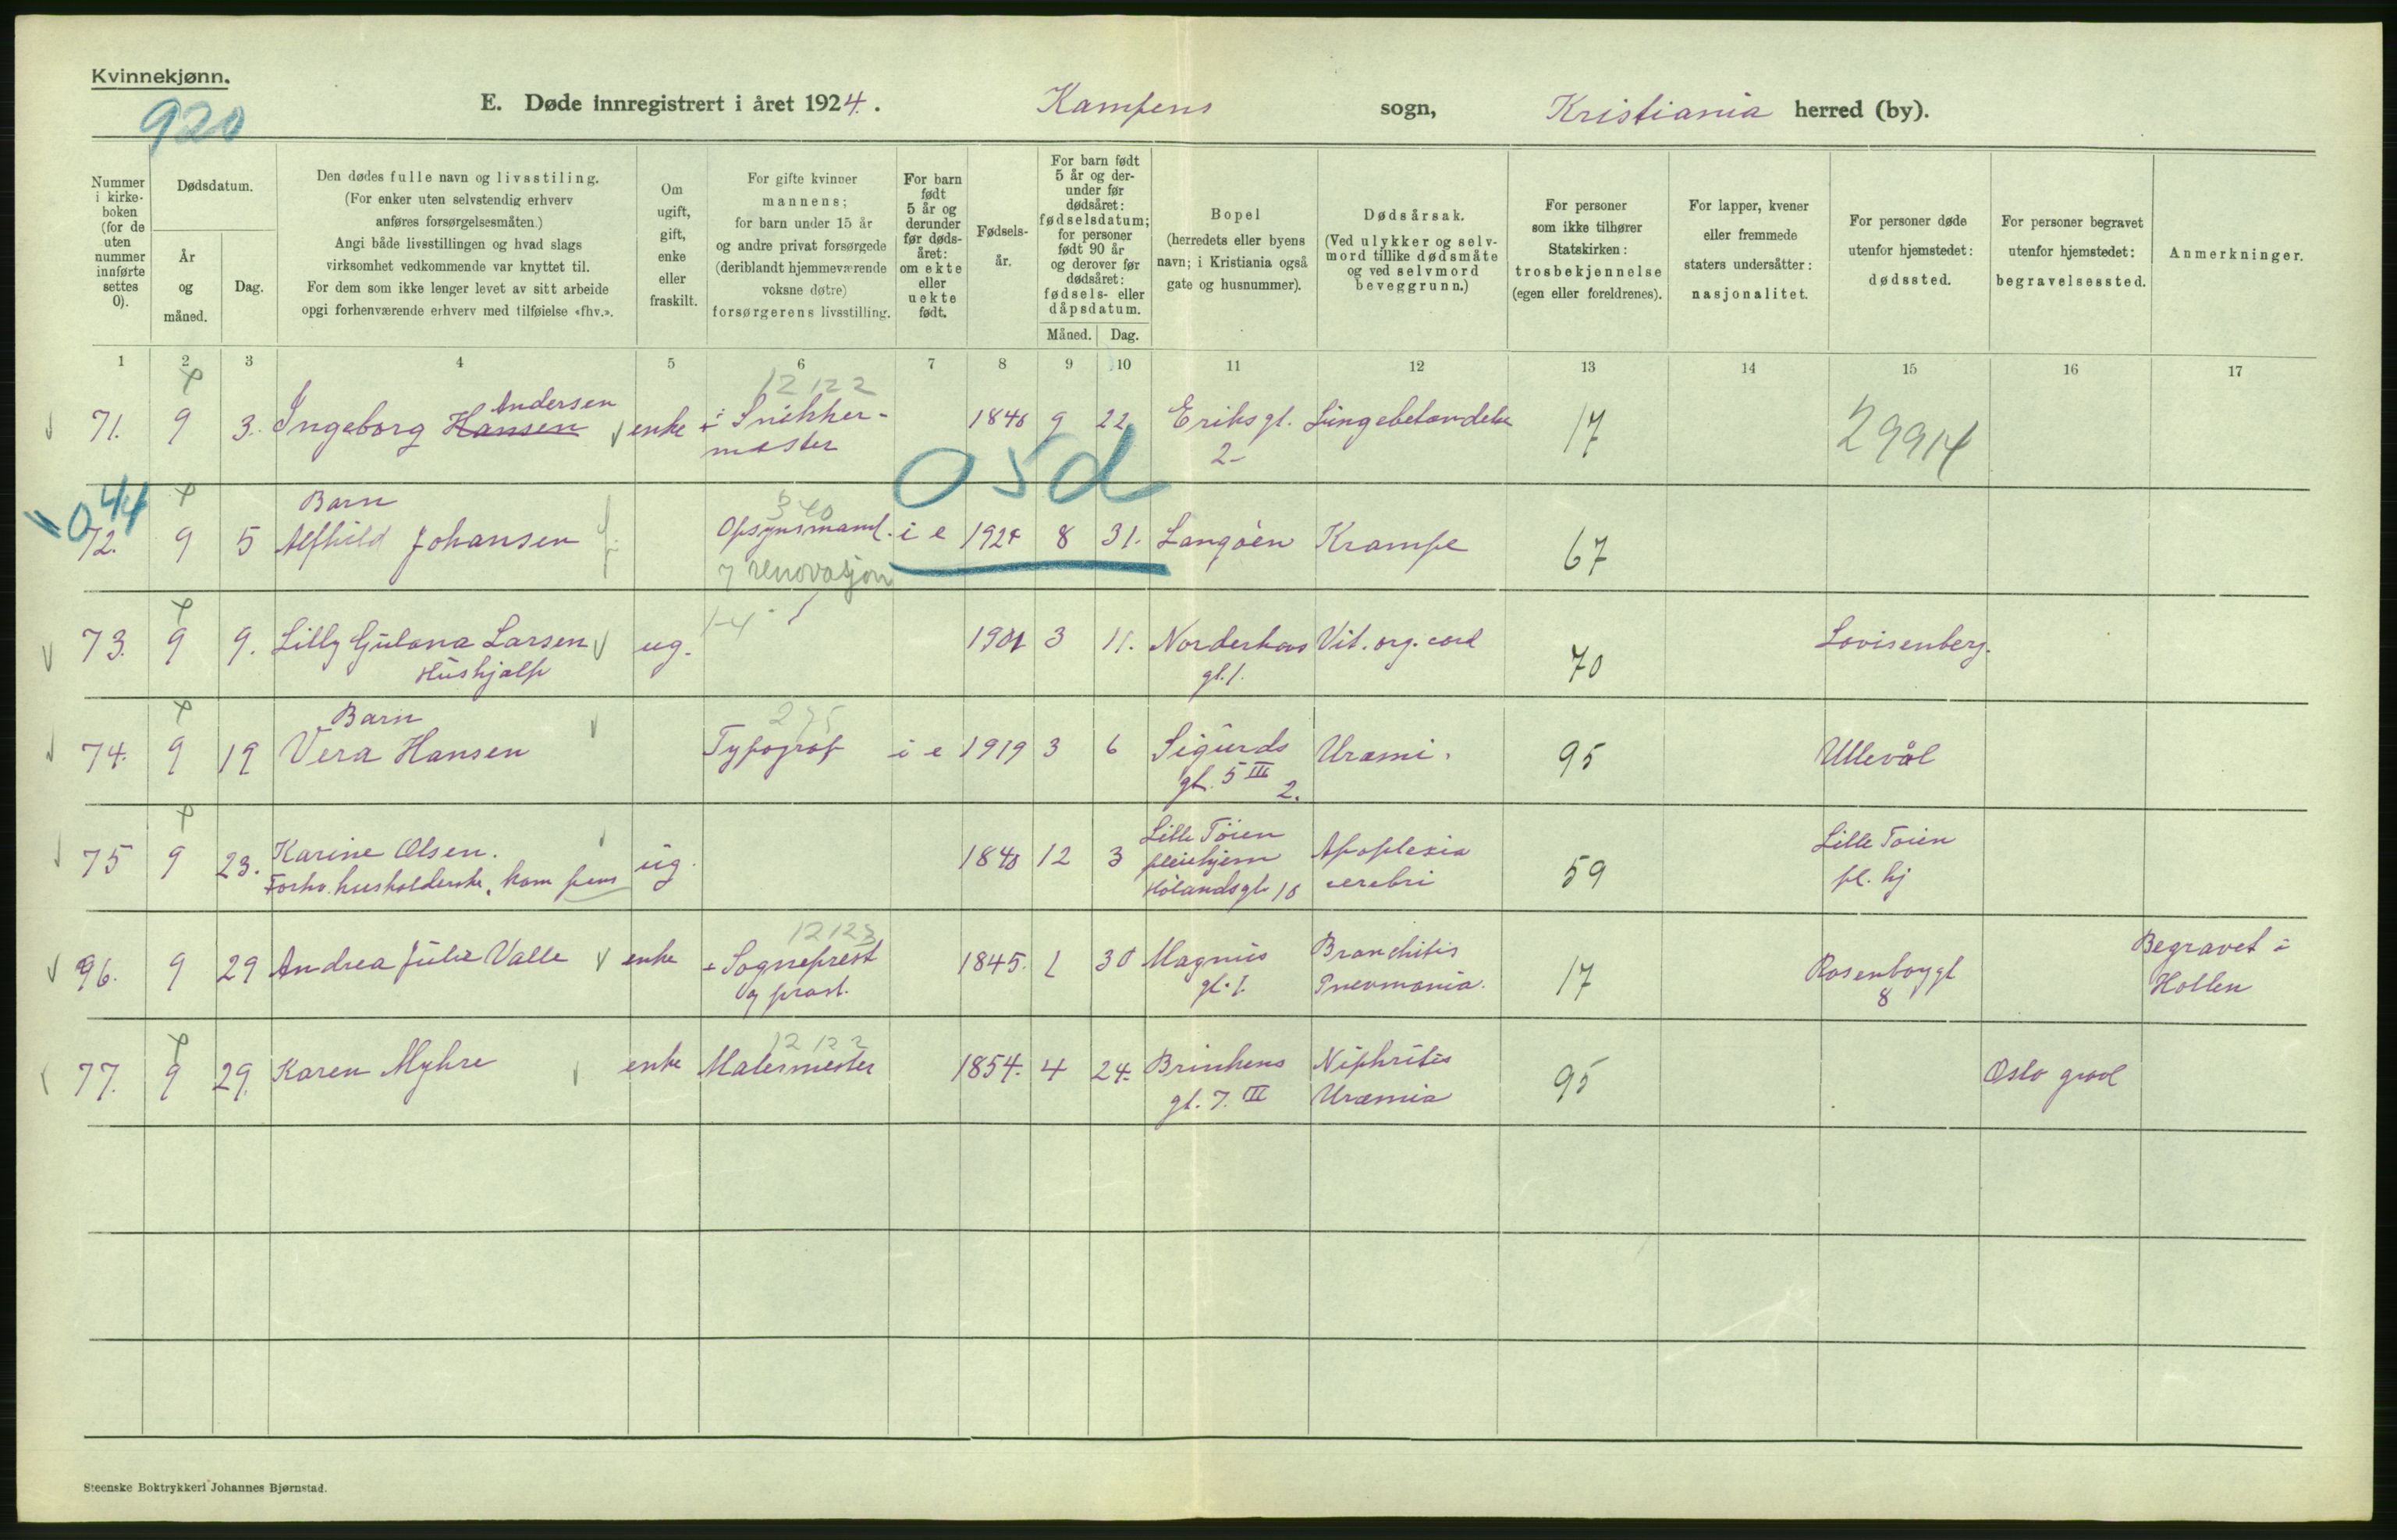 Kvinnekjønn.
920
E. Døde innregistrert i året 1924. Kampens sogn, Kristiania herred (by).
Nummer i kirkeboken (for de uten nummer innførte settes 0).
Dødsdatum.
År og måned.
Dag.
Den dødes fulle navn og livsstiling.
(For enker uten selvstendig erhverv
anføres forsørgelsesmåten.)
Angi både livsstillingen og hvad slags
virksomhet vedkommende var knyttet til.
For dem som ikke lenger levet av sitt arbeide
opgi forhenværende erhverv med tilføielse «fhv.».
Om ugift, gift, enke eller fraskilt.
For gifte kvinner
mannens;
for barn under 15 år
og andre privat forsørgede
(deriblandt hjemmeværende
voksne døtre)
forsørgerens livsstilling.
For barn født 5 år og derunder før dødsåret: om ekte eller uekte født.
Fødselsår.
For barn født 5 år og derunder før dødsåret: fødselsdatum; for personer født 90 år og derover før dødsåret: fødsels- eller dåpsdatum.
Måned. Dag.
Bopel
(herredets eller byens
navn; i Kristiania også
gate og husnummer).
Dødsårsak.
(Ved ulykker og selvmord tillike dødsmåte og ved selvmord beveggrunn.)
For personer
som ikke tilhører
Statskirken:
trosbekjennelse
(egen eller foreldrenes).
For lapper, kvener
eller fremmede
staters undersåtter:
nasjonalitet.
For personer døde
utenfor hjemstedet:
dødssted.
For personer begravet
utenfor hjemstedet:
begravelsessted.
Anmerkninger.
1 2 3 4 5 6 7 8 9 10 11 12 13 14 15 16 17
12122
Andersen
71. 9 3. Ingeborg Hansen enke Snekker- 1848 9 22 Eriksgt. Lungebetændelse 17 29914
mester 2
05d
044
Barn 340
72. 9 5 Alfhild Johansen Opsynsmand. i e 1924 8 31. Langøen Krampe 67
renovasjon
73. 9 9. Lilly Gulana Larsen ug. 1901 3 11. Norderhovs Vit. org. cord 70 Lovisenberg.
Hushjælp gt. 1.
Barn 275
74. 9 19 Vera Hansen Typograf i e 1919 3 6 Sigurds Uræmi. 95 Ullevål
gt. 5 III 2.
75 9 23. Karine Olsen. ug. 1848 12 3 Lille Töien Apoplexia 59 Lille Töien
Forhv. husholderske, kom pens pleiehjem cerebri pl. hj
Hölandsgt 18
12123
96. 9 29 Andrea Julie Valle enke Sogneprest 1845. 1 30 Magnus Bronchitis 17 Rosenborggt Begravet i
og prost. gt. 1. Pneumonia. 8 Hollen
12 122
77. 9 29. Karen Myhre enke Malermester 1854. 4 24. Brinkens Nephritis 95 Oslo gravl
gt. 7. III Uræmia
Steenske Boktrykkeri Johannes Bjørnstad.